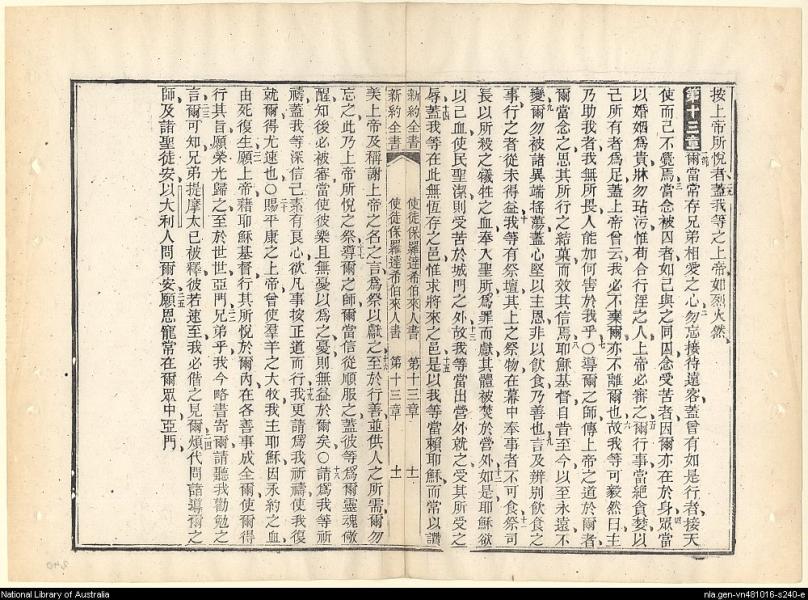 按上帝所悅者、蓋我等之上帝、如烈火然、
第十三章 爾當常存兄弟相愛之心、勿忘接待遠客、蓋曾有如是行者、接天
使而己不覺焉、當念被囚者、如己與之同囚、念受苦者、因爾亦在於身、眾當
以婚姻為貴、牀勿玷污、惟苟合行淫之人、上帝必審之、爾行事當絕貪婪、以
己所有者為足、蓋上帝曾云、我必不棄爾、亦不離爾也、故我等可毅然曰、主
乃助我者、我無所畏、人能如何害於我乎、○導爾之師、傳上帝之道於爾者、
爾當念之、思其所行之結菓、而效其信焉、耶穌基督、自昔至今、以至永遠不
變、爾勿被諸異端搖蕩、蓋心堅以主恩、非以飲食、乃善也、言及辨別飲食之
事、行之者從未得益、我等有祭壇、其上之祭物、在幕中奉事者不可食、祭司
長以所殺之犧牲之血、奉入聖所、為罪而獻、其體被焚於營外、如是耶穌欲
以己血使民聖潔、則受苦於城門之外、故我等當出營外就之、受其所受之
辱、蓋我等在此無恆存之邑、惟求將來之邑、是以我等當賴耶穌、而常以讚
新約全書 使徒保羅達希伯來人書 第十三章 十一
新約全書 使徒保羅達希伯來人書 第十三章 十一
美上帝、及稱謝上帝之名之言、為祭以獻之、至於行善、並供人之所需、爾勿
忘之、此乃上帝所悅之祭、導爾之師、爾當信從順服之、蓋彼等為爾靈魂儆
醒、知後必被審、當使彼樂且無憂、以為之憂、則無益於爾矣、○請為我等祈
禱、蓋我等深信己素有良心、欲凡事按正道而行、我更請為我祈禱、使我復
就爾得尤速也、○賜平康之上帝、曾使羣羊之大牧、我主耶穌、因永約之血、
由死復生、願上帝藉耶穌基督、行其所悅於爾內、在各善事成全爾、使爾得
行其旨、願榮光歸之、至於世世、亞門、兄弟乎、我今略書寄爾、請聽我勸勉之
言、爾可知兄弟提摩太已被釋、彼若速至、我必偕之見爾、煩代問諸導爾之
師、及諸聖徒安、以大利人問爾安、願恩寵常在爾眾中、亞門、
National Library of Australia
nla.gen-vn481016-s240-e